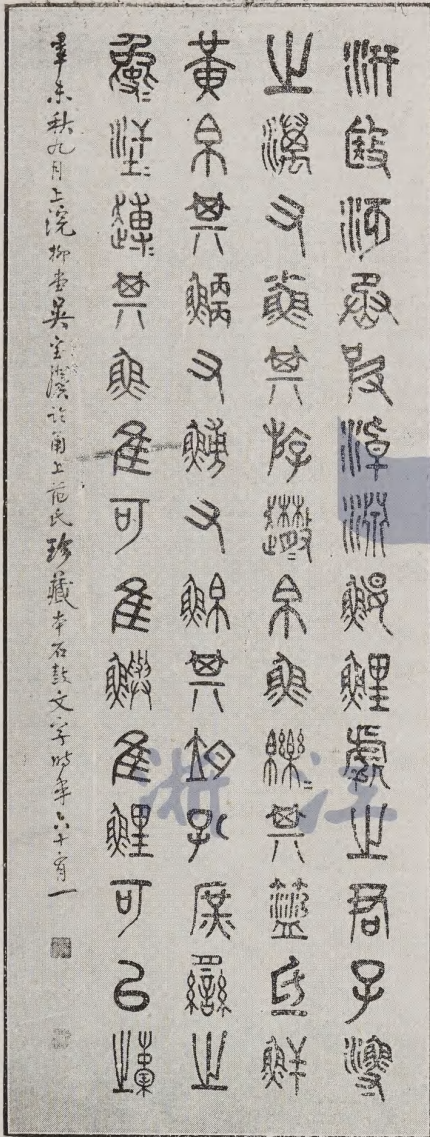 汧殹沔丞彼淖淵鰋鯉處之君子漁
之澫又小魚其斿趣帛魚鱳其盜氐鮮
黃帛其鯿又鰟又鯾其朔孔庶臠之
夐汗趍其魚隹可隹鱮隹鯉可㠯橐
辛未秋九月上浣柳堂吳寶臨甬上范氏珍藏本石鼓文字時年六十有一
浙江